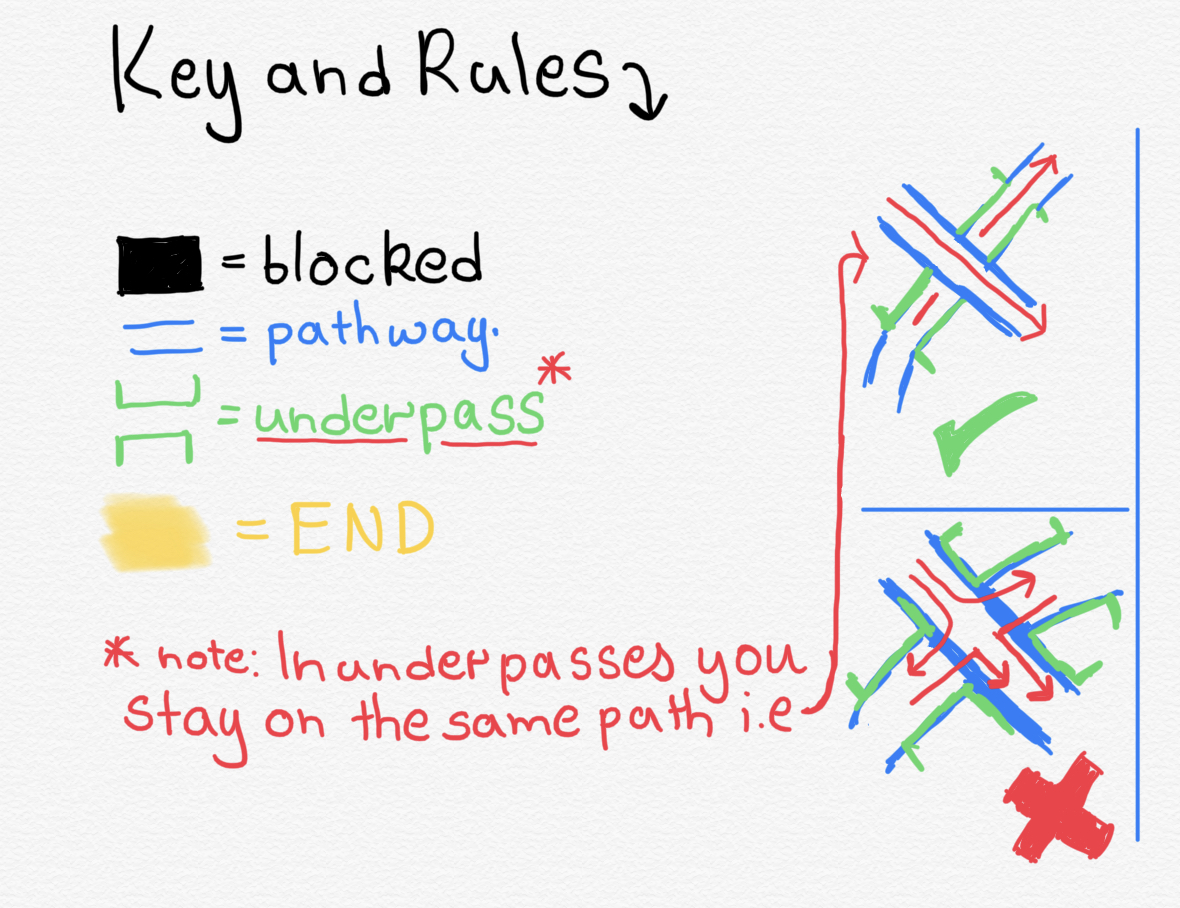 Key and Rules
= blocked
= pathway.
= underpass*
= END
* note: In underpasses you
stay on the same path i.e